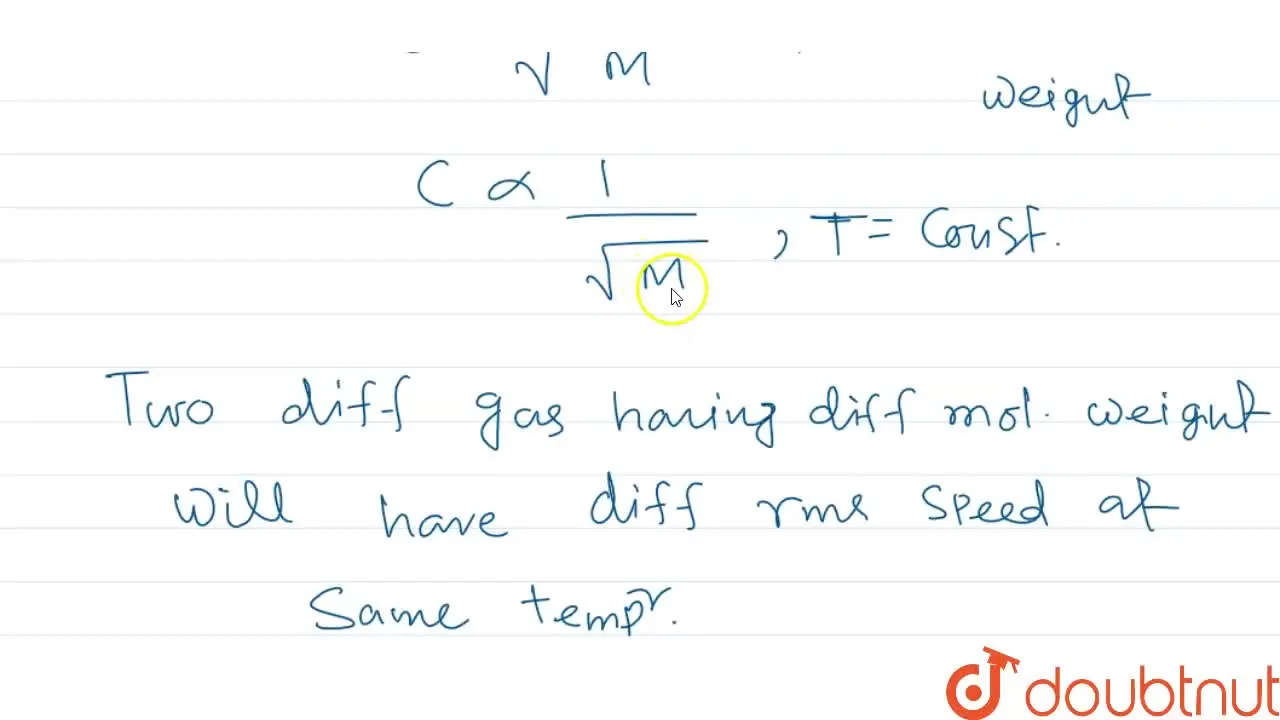 √ M
weight
C ∝ 1
√M , T = Const.
Two diff gas having diff mol. weight
will have diff rms speed at
Same tempr.
doubtnut